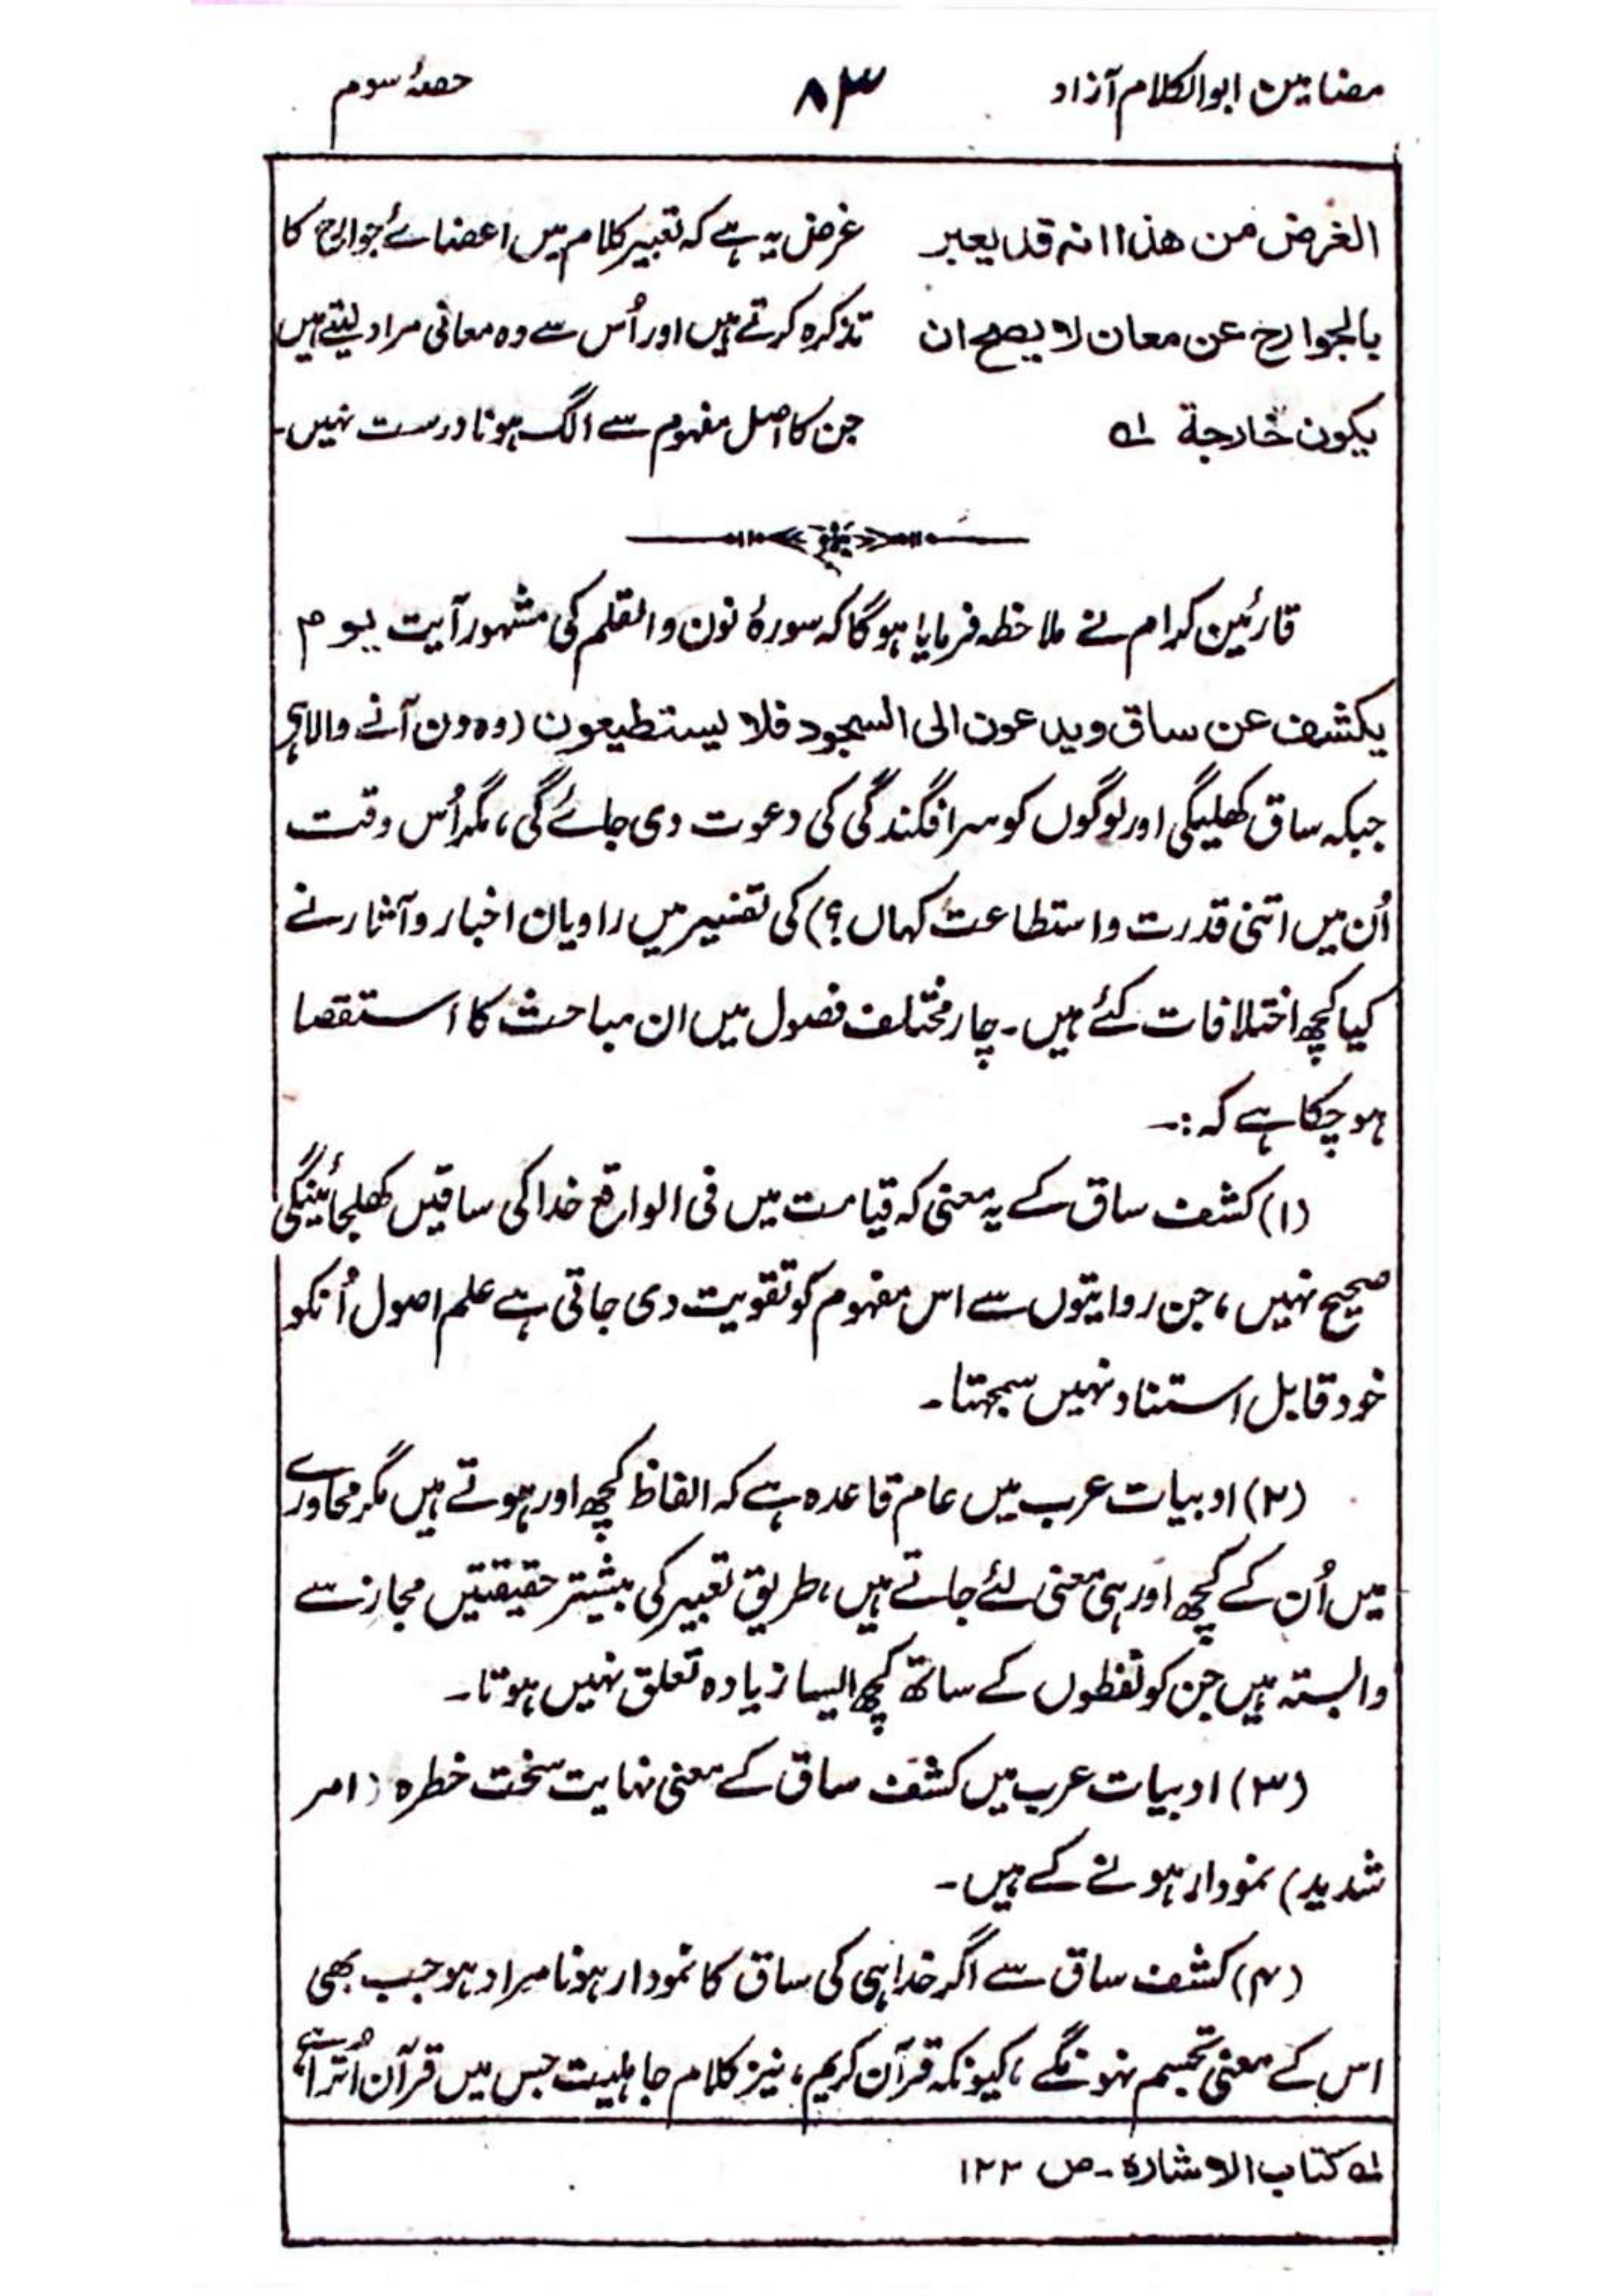 مضامین ابوالکلام آزاد ۸۳ حصۂ سوم
الغرض من ھذا انہ قد یعبر غرض یہ ہے کہ تعبیر کلام میں اعضائے جوارح کا
بالجوارح عن معان لا یصح ان تذکرہ کرتے ہیں اور اُس سے وہ معانی مراد لیتے ہیں
یکون خارجة لہ جن کا اصل مفہوم سے الگ ہونا درست نہیں۔
قارئین کرام نے ملاخظہ فرمایا ہوگا کہ سورۂ نون والقلم کی مشہور آیت یوم
یکشف عن ساق ویدعون الی السجود فلا یستطیعون (وہ دن آنے والا ہی
جبکہ ساق کھلیگی اور لوگوں کو سرافگندگی کی دعوت دی جائے گی، مگر اُس وقت
اُن میں اتنی قدرت و استطاعت کہاں؟) کی تفسیر میں راویان اخبار و آثار نے
کیا کچھ اختلافات کئے ہیں۔ چار مختلف فصول میں ان مباحث کا استقصا
ہو چکا ہے کہ:۔
(۱) کشف ساق کے یہ معنی کہ قیامت میں فی الواقع خدا کی ساقیں کھلجائینگی
صحیح نہیں، جن روایتوں سے اس مفہوم کو تقویت دی جاتی ہے علم اصول اُنکو
خود قابل استناد نہیں سمجہتا۔
(۲) ادبیات عرب میں عام قاعدہ ہے کہ الفاظ کچھ اور ہوتے ہیں مگر محاورے
میں اُن کے کچھ اور ہی معنی لئے جاتے ہیں، طریق تعبیر کی بیشتر حقیقتیں مجاز سے
وابستہ ہیں جن کو لفظوں کے ساتھ کچھ ایسا زیادہ تعلق نہیں ہوتا۔
(۳) ادبیات عرب میں کشف ساق کے معنی نہایت سخت خطرہ (امر
شدید) نمودار ہونے کے ہیں۔
(۴) کشف ساق سے اگر خدا ہی کی ساق کا نمودار ہونا مراد ہو جب بھی
اس کے معنی تجسم نہونگے، کیونکہ قرآن کریم، نیز کلام جاہلیت جس میں قرآن اُترا ہے
لہ کتاب الاشارہ۔ ص ۱۲۲